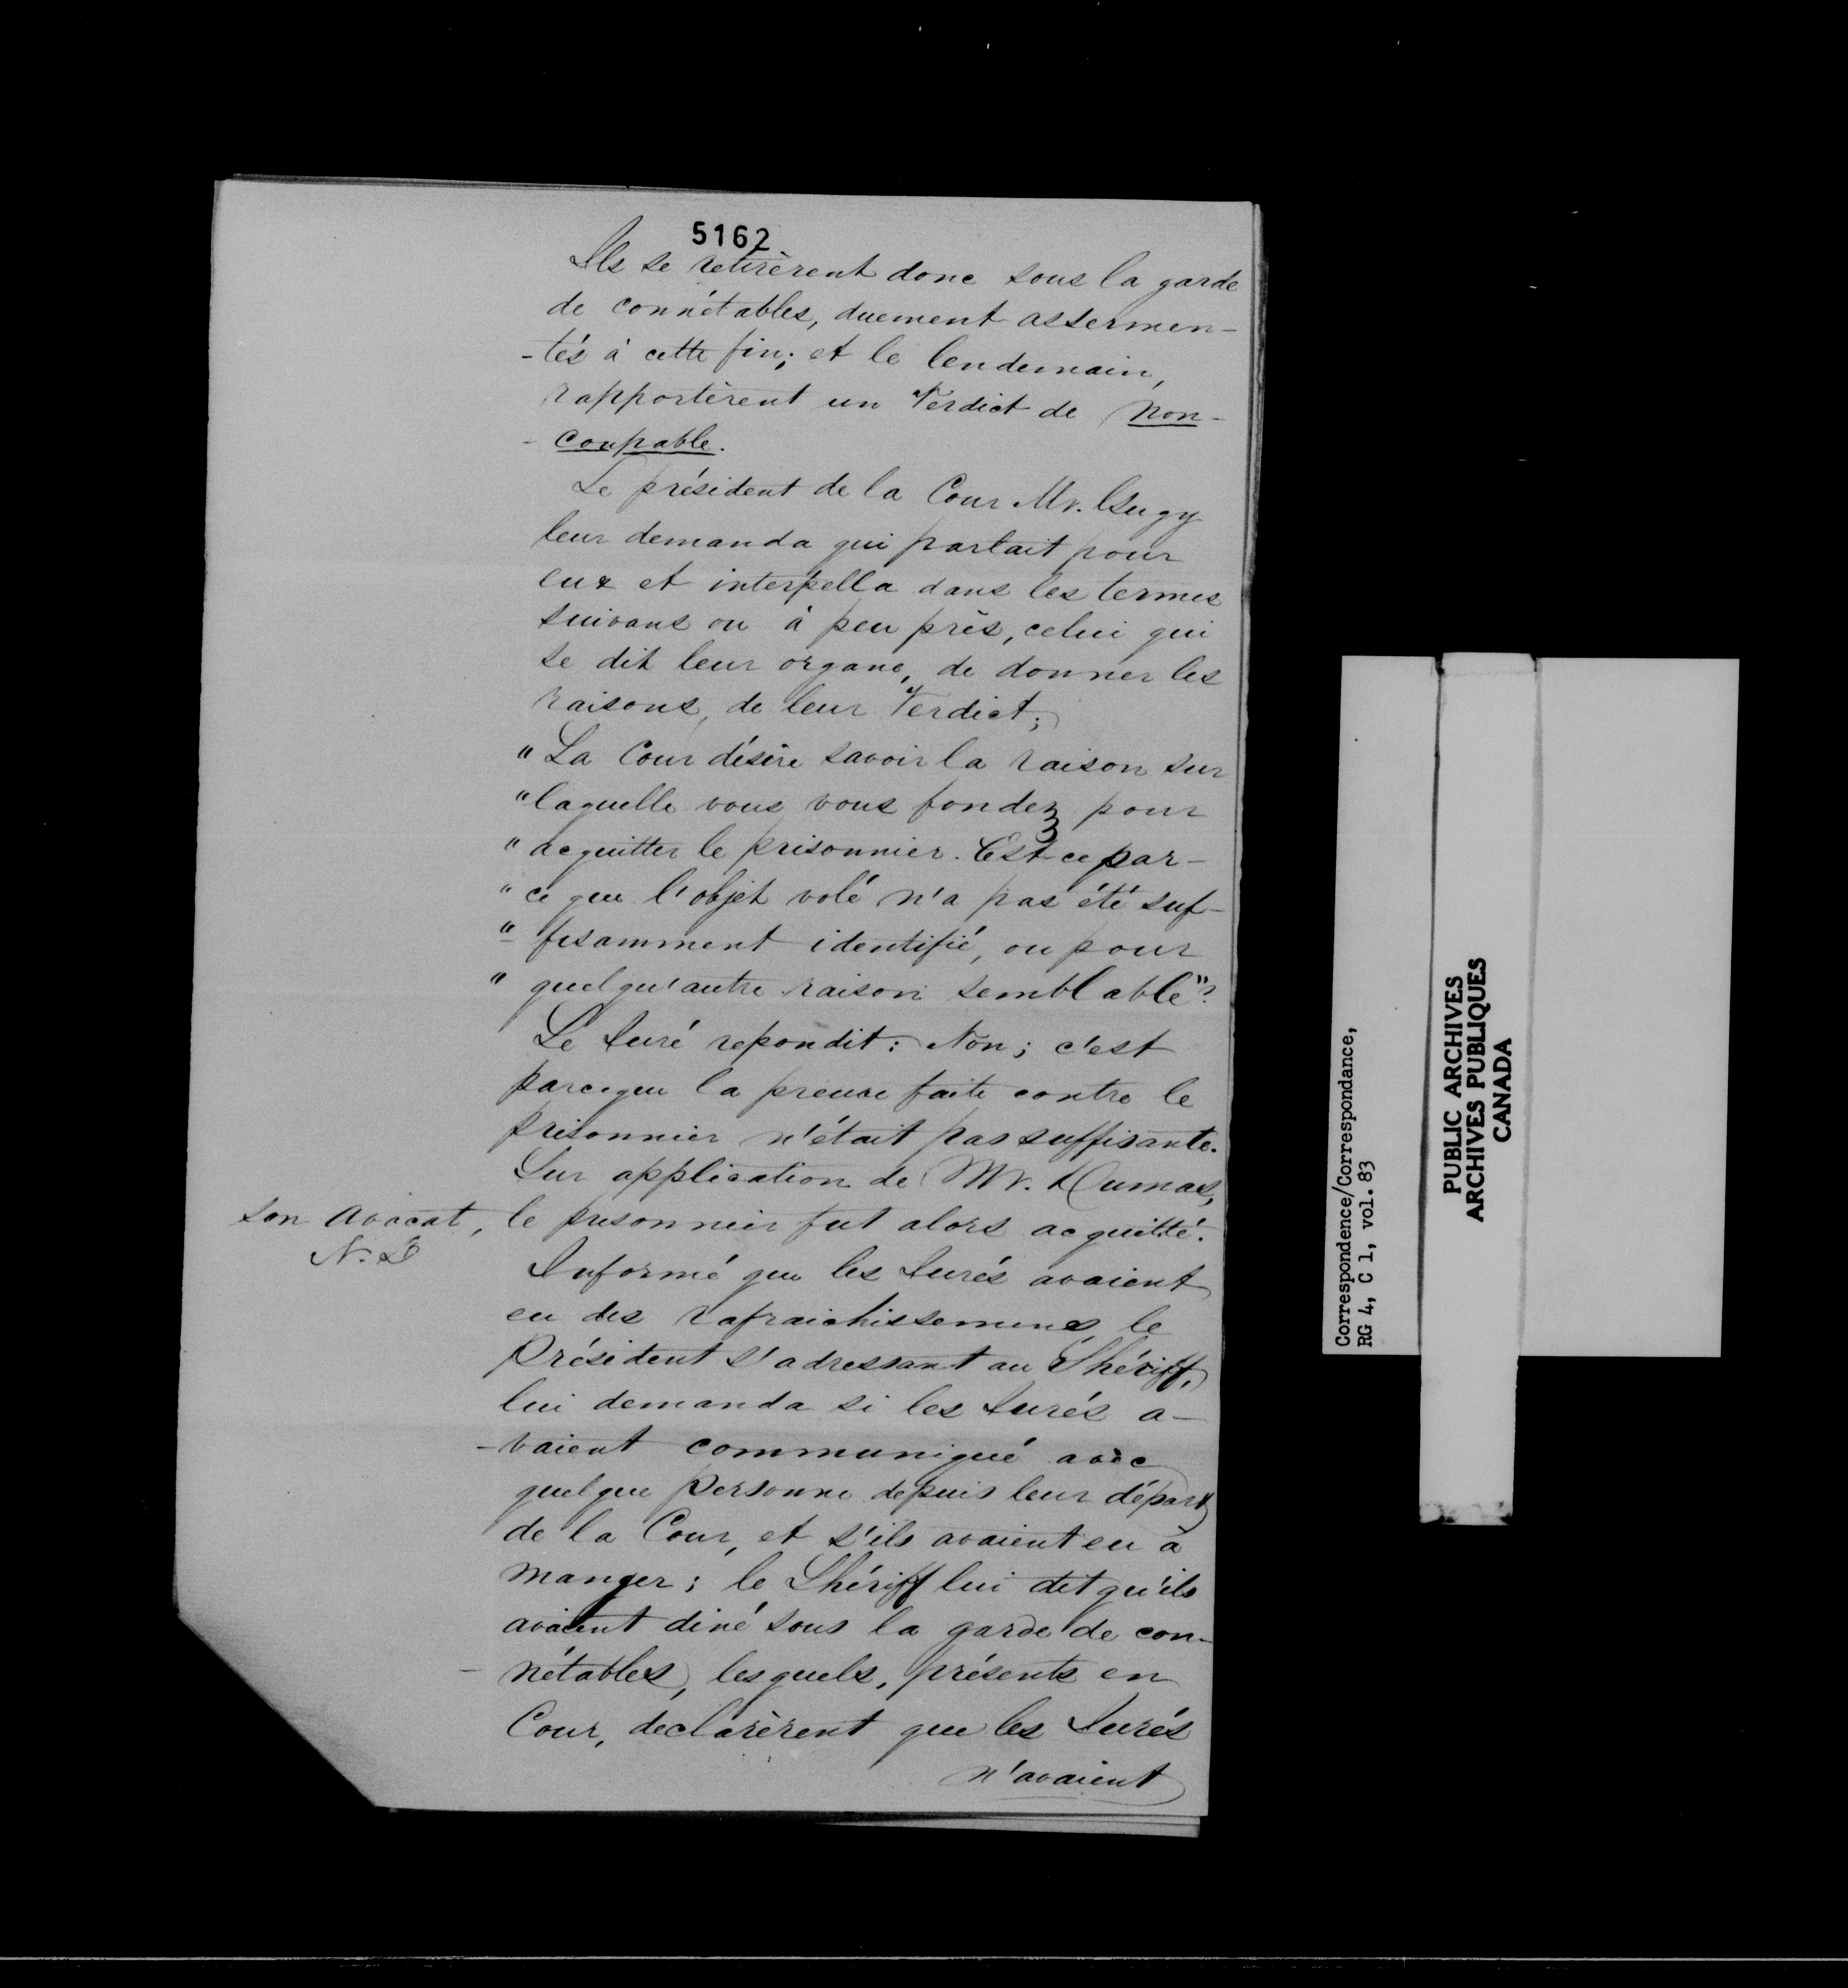 5162
Ils se retirèrent donc sous la garde
de connétables, duement assermen-
-tés à cette fin; et le lendemain,
rapportèrent un Verdict de non-
- coupable.
Le président de la Cour Mr. Gugy
leur demanda qui parlait pour
eux et interpella dans les termes
suivans ou à peu près, celui qui
se dit leur organe, de donner les
raisons, de leur Verdict;
"La Cour désire savoir la raison sur
"laquelle vous vous fondez pour
"acquitter le prisonnier. Est-ce par-
"ce que l'objet volé n'a pas été suf-
"- fisamment identifié, ou pour
"quelqu'autre raison semblable"?
Le Juré repondit: Non; c'est
parceque la preuve faite contre le
prisonnier n'était pas suffisante.
Sur application de Mr. Dumas,
son avocat, le prisonnier fut alors acquitté.
N. D
Informé que les Jurés avaient
eu des rafraichissemens, le
Président s'adressant au Shériff,
lui demanda si les Jurés a-
-vaient communiqué avec
quelque personne depuis leur départ
de la Cour, et s'ils avaient eu à
manger; le Shériff lui dit qu'ils
avaient diné sous la garde de con-
- nétables, lesquels, présents en
Cour, declarèrent que les Jurés
n'avaient
Correspondence/Correspondance,
RG 4, C 1, vol. 83
PUBLIC ARCHIVES
ARCHIVES PUBLIQUES
CANADA